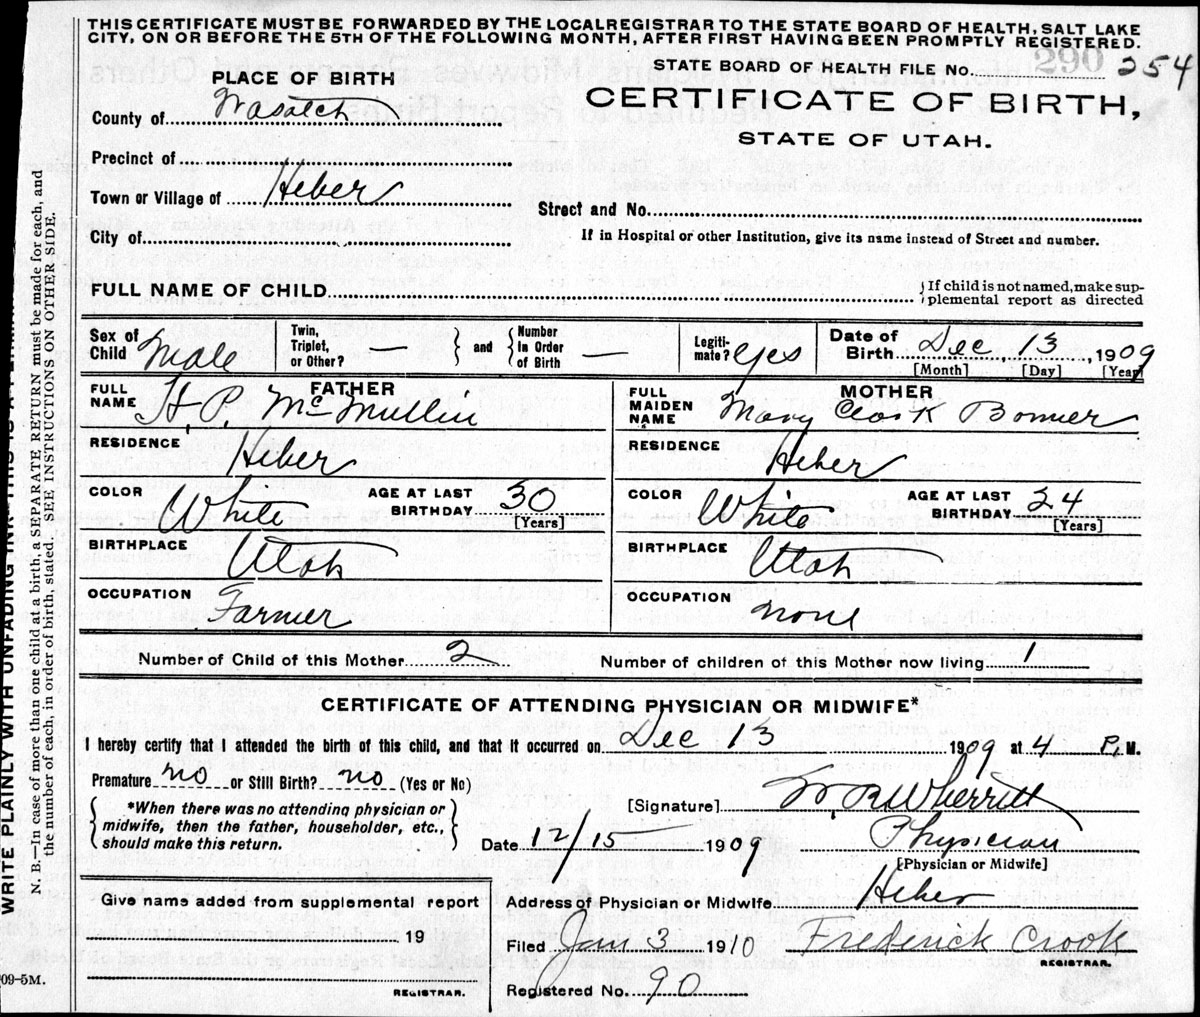 THIS CERTIFICATE MUST BE FORWARDED BY THE LOCAL REGISTRAR TO THE STATE BOARD OF HEALTH, SALT LAKE
CITY, ON OR BEFORE THE 5TH OF THE FOLLOWING MONTH, AFTER FIRST HAVING BEEN PROMPTLY REGISTERED.
STATE BOARD OF HEALTH FILE No. 290 254
PLACE OF BIRTH
CERTIFICATE OF BIRTH,
STATE OF UTAH.
County of Wasatch
Precinct of
Town or Village of Heber
Street and No.
City of
If in Hospital or other Institution, give its name instead of Street and number.
FULL NAME OF CHILD
If child is not named, make sup-
plemental report as directed
Sex of Child Male
Twin, Triplet, or Other? — and Number In Order of Birth —
Legiti-mate? yes
Date of Birth Dec, 13, 1909
[Month] [Day] [Year]
FATHER
FULL NAME H. P. McMullin
RESIDENCE Heber
COLOR White AGE AT LAST BIRTHDAY 30
[Years]
BIRTHPLACE Utah
OCCUPATION Farmer
MOTHER
FULL MAIDEN NAME Mary Bonner
RESIDENCE Heber
COLOR White AGE AT LAST BIRTHDAY 24
[Years]
BIRTHPLACE Utah
OCCUPATION none
Number of Child of this Mother 2 Number of children of this Mother now living 1
CERTIFICATE OF ATTENDING PHYSICIAN OR MIDWIFE*
I hereby certify that I attended the birth of this child, and that it occurred on Dec 13 1909 at 4 P. M.
Premature no or Still Birth? no (Yes or No)
*When there was no attending physician or
midwife, then the father, householder, etc.,
should make this return.
[Signature] Wherritt
Date 12/15 1909 Physician
[Physician or Midwife]
Address of Physician or Midwife. Heber
Give name added from supplemental report
19
REGISTRAR.
Filed Jan 3 1910 Frederick Crook
REGISTRAR.
Registered No. 90
09-5M.
WRITE PLAINLY WITH UNFADING INK
N. B.—In case of more than one child at a birth, a SEPARATE RETURN must be made for each, and
the number of each, in order of birth, stated. SEE INSTRUCTIONS ON OTHER SIDE.